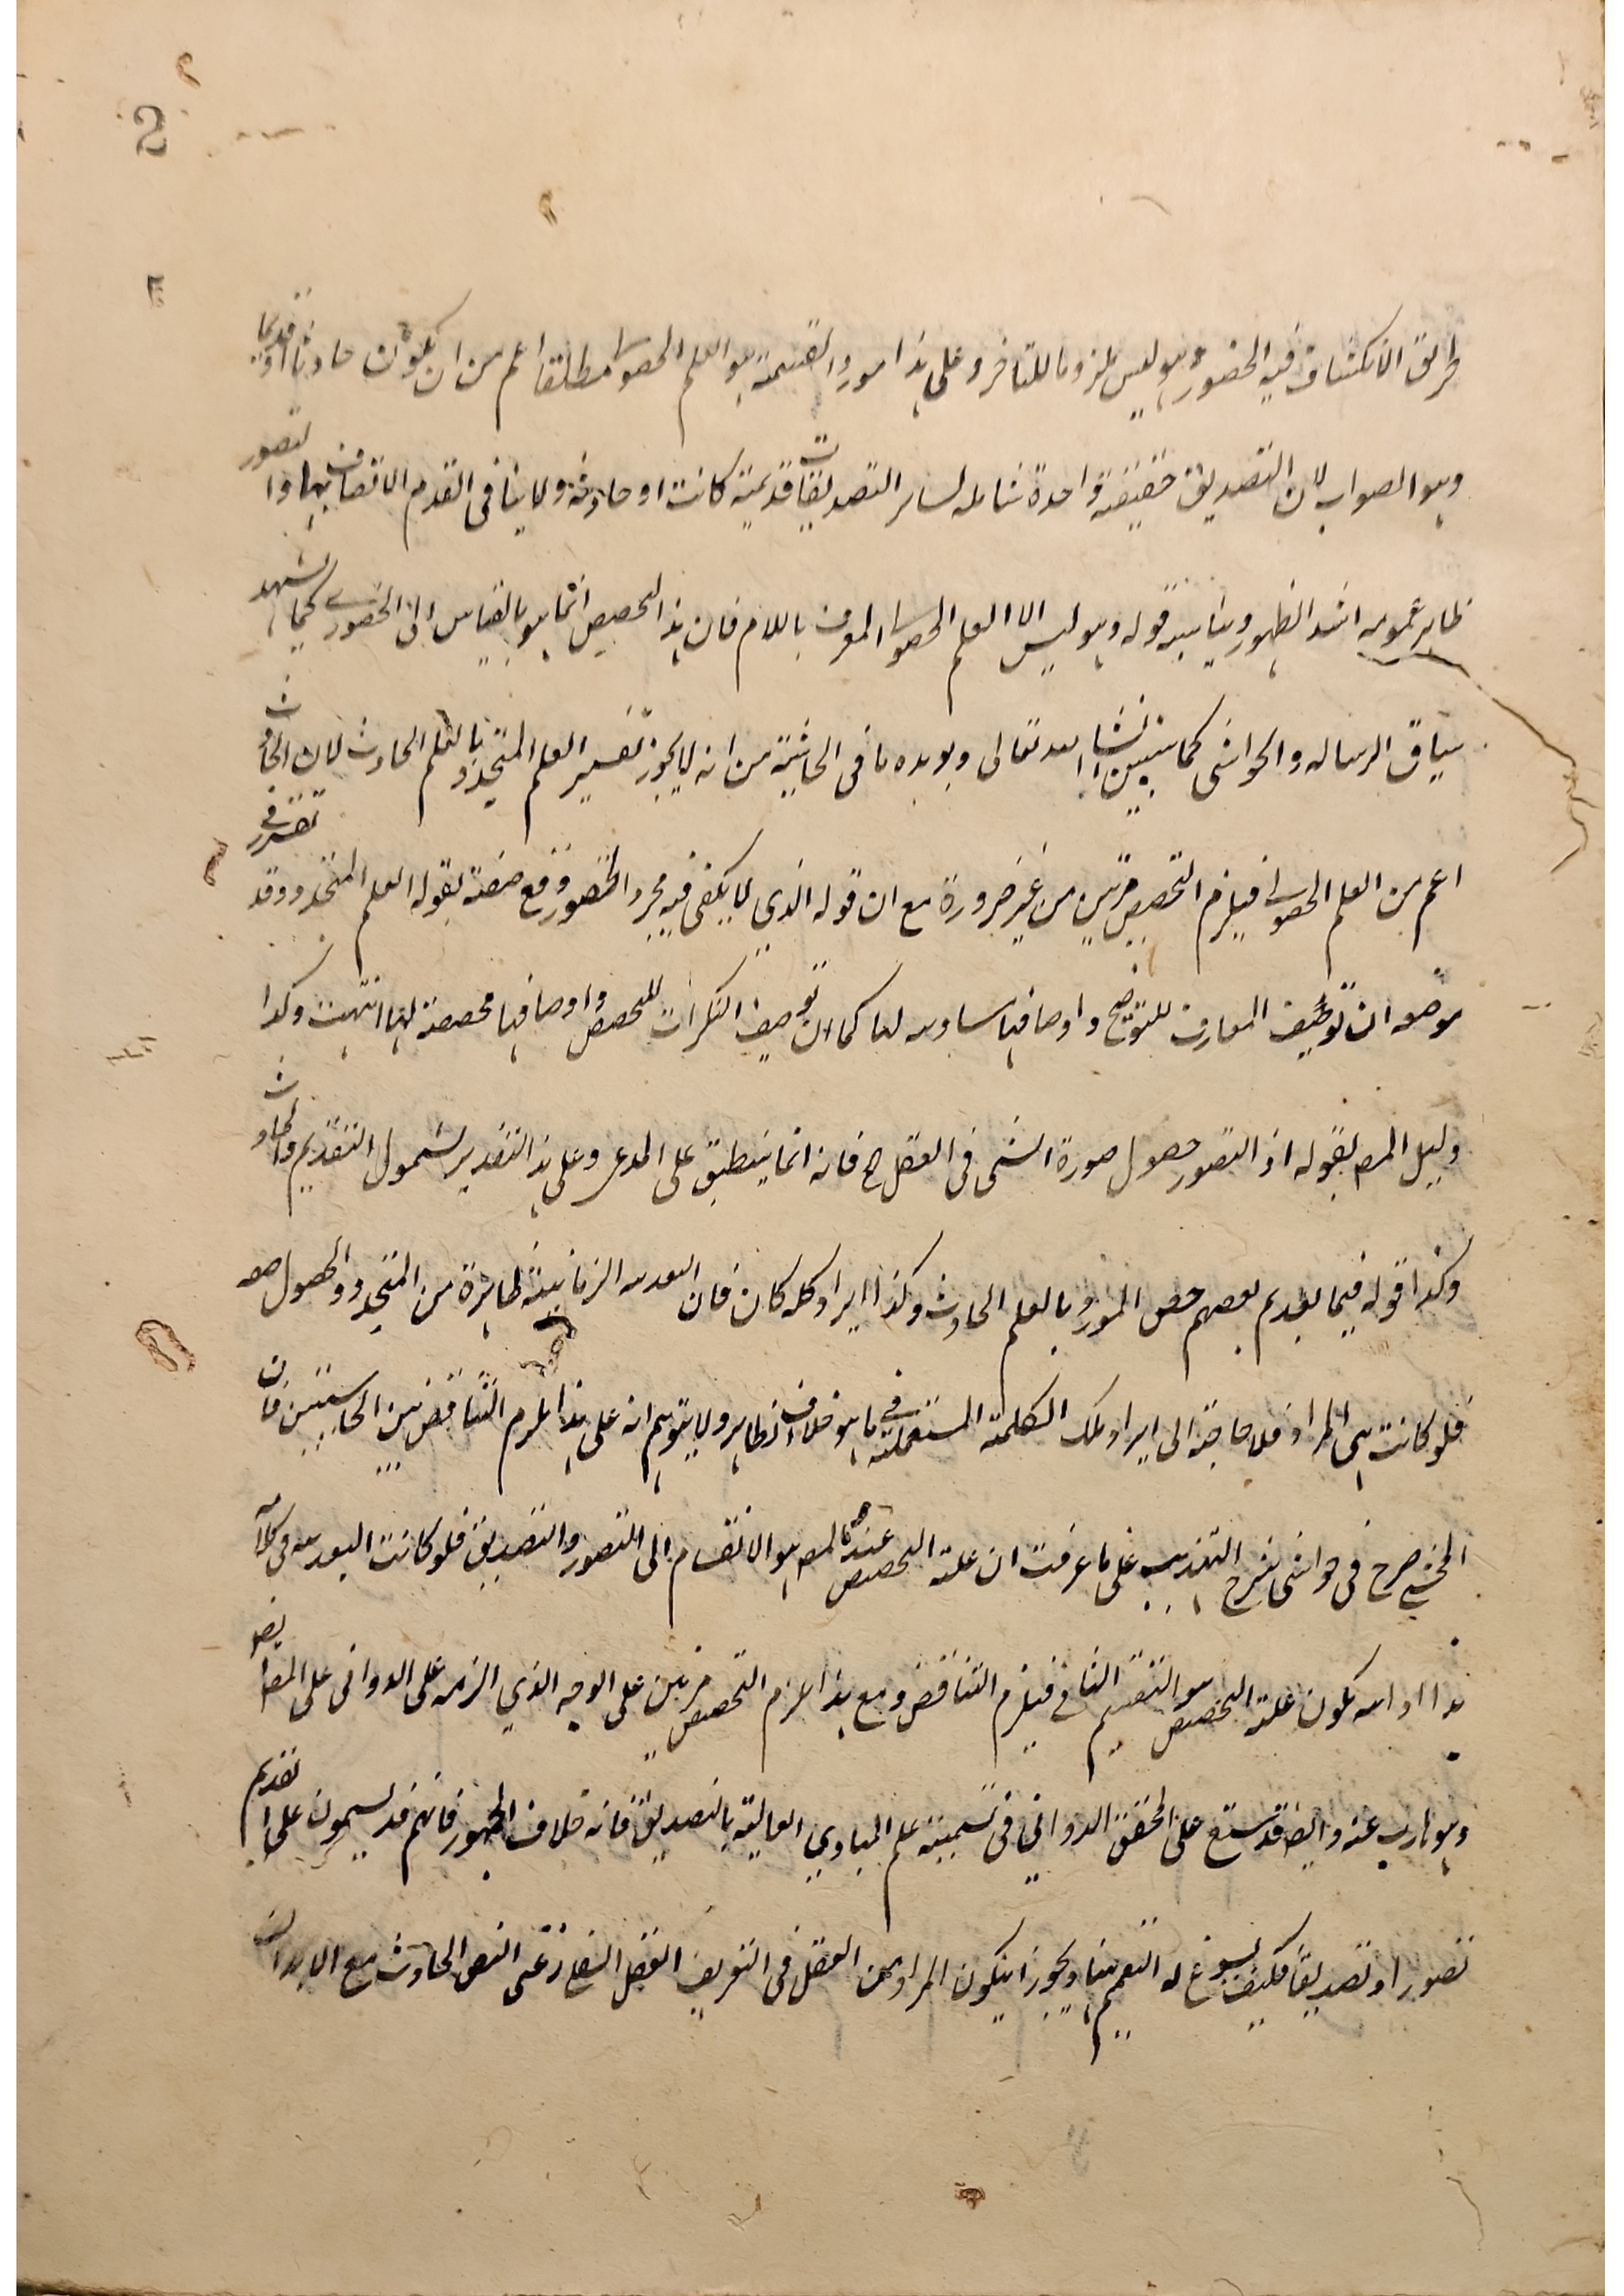 طريق الانكشاف فيه الحضور وهو ليس ملزوما للتنافر وعلى هذا مورد القسمة هو العلم الحصولي مطلقا اعم من ان يكون حادثا او قديما
وهو الصواب لان التصديق حقيقة واحدة شاملة لسائر التصديقات قديمة كانت او حادثة ولا ينافي القدم الاتصاف بها والتصور
ظاهر عمومه اشد الظهور ويناسبه قوله وهو ليس الا العلم الحصولي المعرف باللام فان هذا التخصيص انما هو بالقياس الى الحضوري كما يشهد
سياق الرسالة والحواشي كما سنبين انشاء الله تعالى ويؤيده ما في الحاشية من انه لا يجوز تفسير العلم المتجدد بالعلم الحادث لان الحادث
اعم من العلم الحصولي فيلزم التخصيص مرتين من غير ضرورة مع ان قوله الذي لا يكفي فيه مجرد الحضور وقع صفة لقوله العلم المتجدد وقد تقرر في
موضعه ان توصيف المعارف للتوضيح واوصافها مساوية لها كما ان توصيف النكرات للتخصيص واوصافها مخصصة لها انتهت وكذا
دليل المصـ بقوله اذ التصور حصول صورة الشئ في العقل الخ فانه انما ينطبق على المدعى وعلى هذا التقدير لشمول القديم والحادث
وكذا قوله فيما بعد بعضهم خص المورد بالعلم الحادث وكذا ايراد كلمة كان فان البعدية الزمانية ظاهرة من المتجدد والحصول
فلو كانت هي المراد فلا حاجة الى ايراد تلك الكلمة المستعملة في ما هو خلاف الظاهر ولا يتوهم انه على هذا يلزم التناقض بين الحاشيتين فان
المحشي صرح في حواشي شرح التهذيب على ما عرفت ان علة التخصيص عند المصـ هو الانقسام الى التصور والتصديق فلو كانت البعدية في كلامه
يكون علة التخصيص هو التقسيم الثاني فيلزم التناقض ومع هذا يلزم التخصيص مرتين على الوجه الذي الزمه على الدواني على المصـ ايضا
وهو هارب عنه وايضا قد شنع على المحقق الدواني في تسمية علم المبادي العالية بالتصديق فانه خلاف الجمهور فانهم قد لا يسمون علم القديم
تصورا وتصديقا فكيف يسوغ له التعميم هنا ويجوز ان يكون المراد من العقل في التعريف